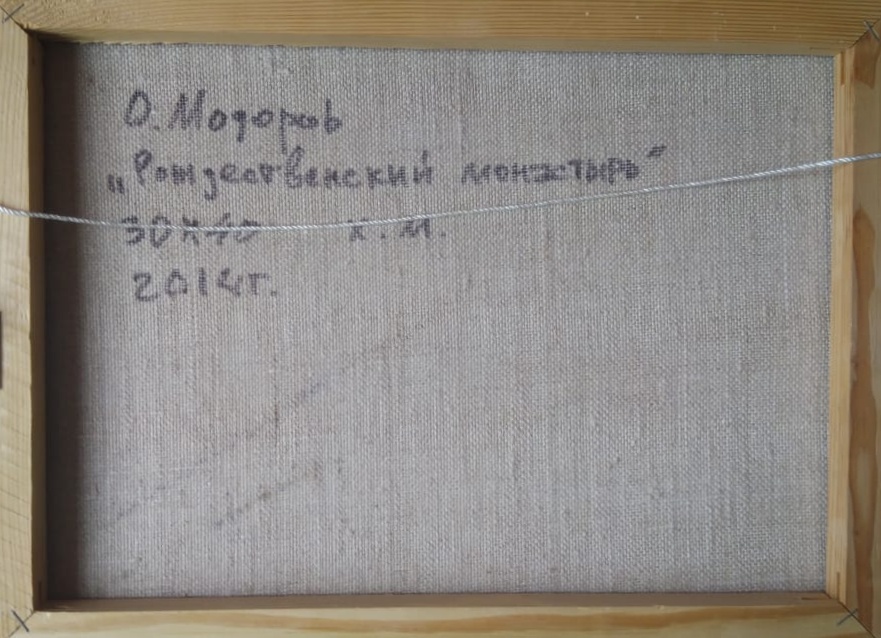 О. Модоров
„Рождественский монастырь"
30х40 х.м.
2014г.